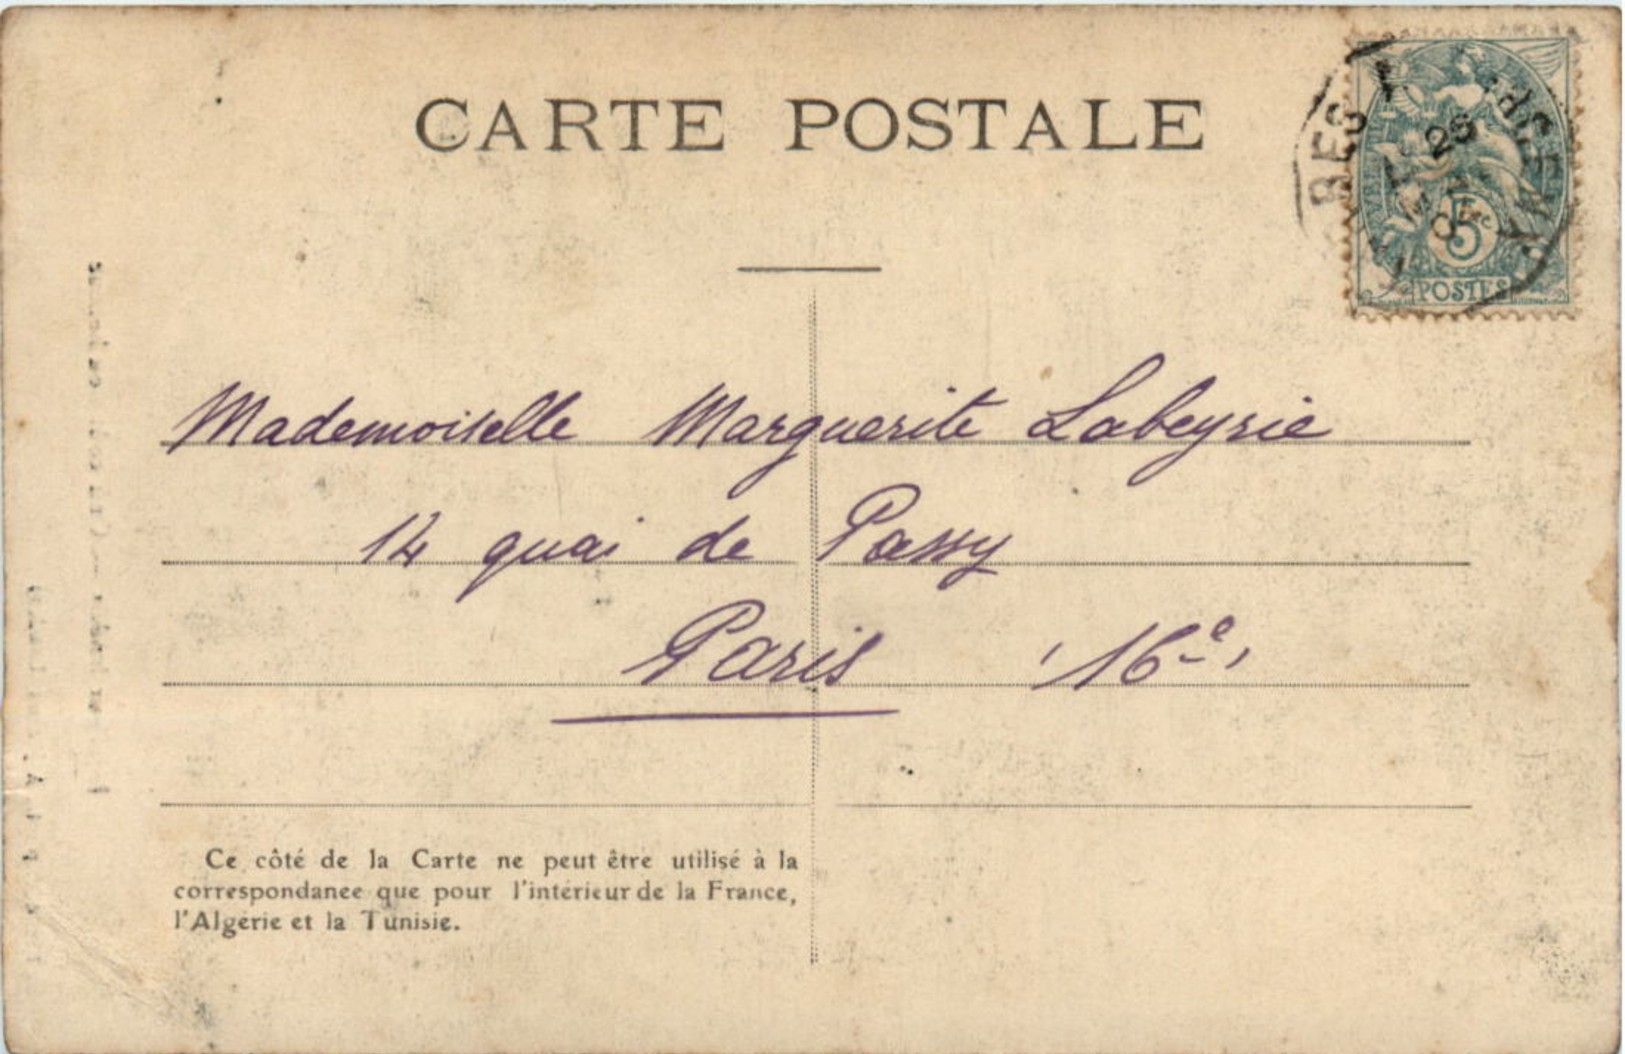 CARTE POSTALE
26
5
POSTES
Mademoiselle Marguerite Labeyrie
14 quai de Passy
Paris (16e)
Ce côté de la Carte ne peut être utilisé à la
correspondance que pour l'intérieur de la France,
l'Algérie et la Tunisie.